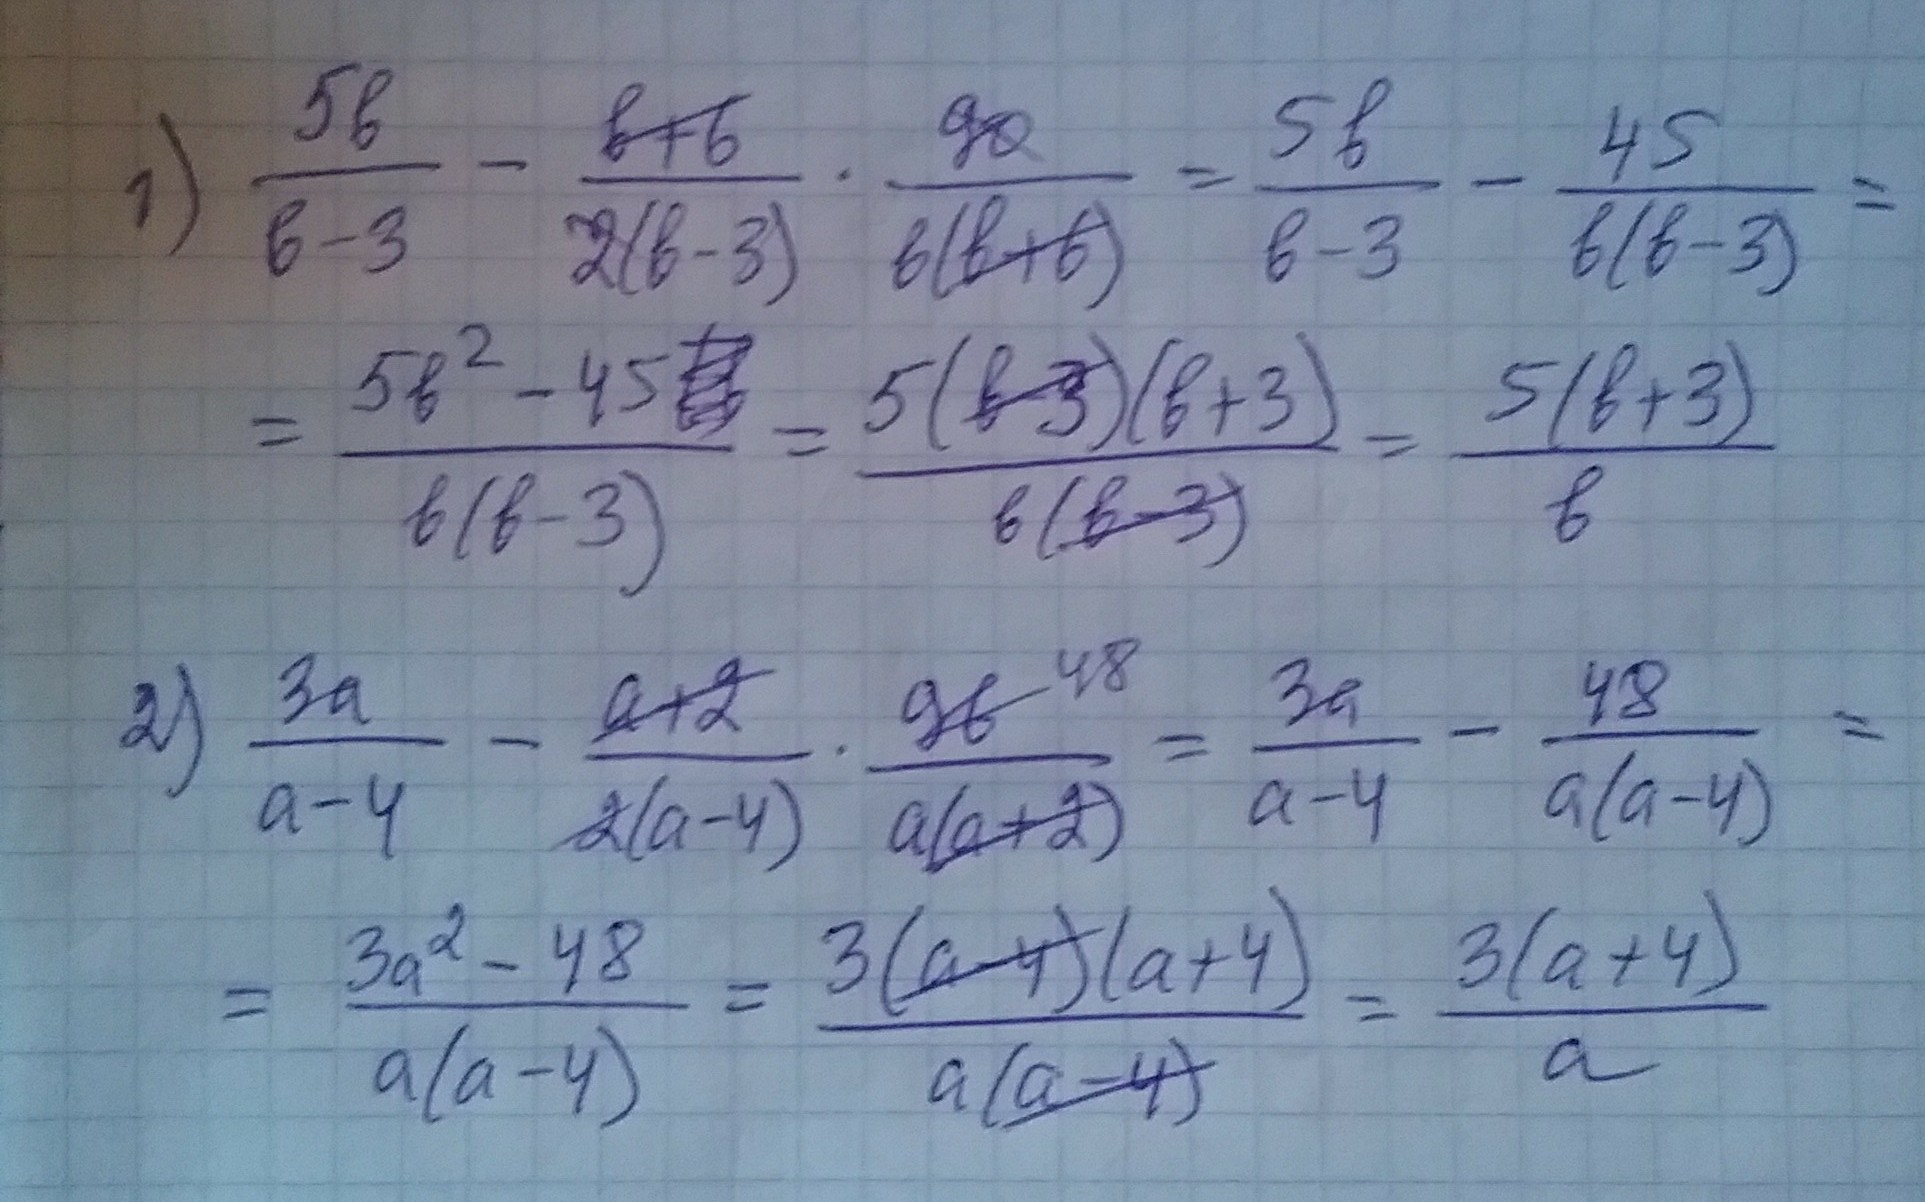 1) 5b/(b-3) - (b+6)/(2(b-3)) · 90/(b(b+6)) = 5b/(b-3) - 45/(b(b-3)) =
= (5b² - 45)/(b(b-3)) = 5(b-3)(b+3)/(b(b-3)) = 5(b+3)/b
2) 3a/(a-4) - (a+2)/(2(a-4)) · 96 48/(a(a+2)) = 3a/(a-4) - 48/(a(a-4)) =
= (3a² - 48)/(a(a-4)) = 3(a-4)(a+4)/(a(a-4)) = 3(a+4)/a